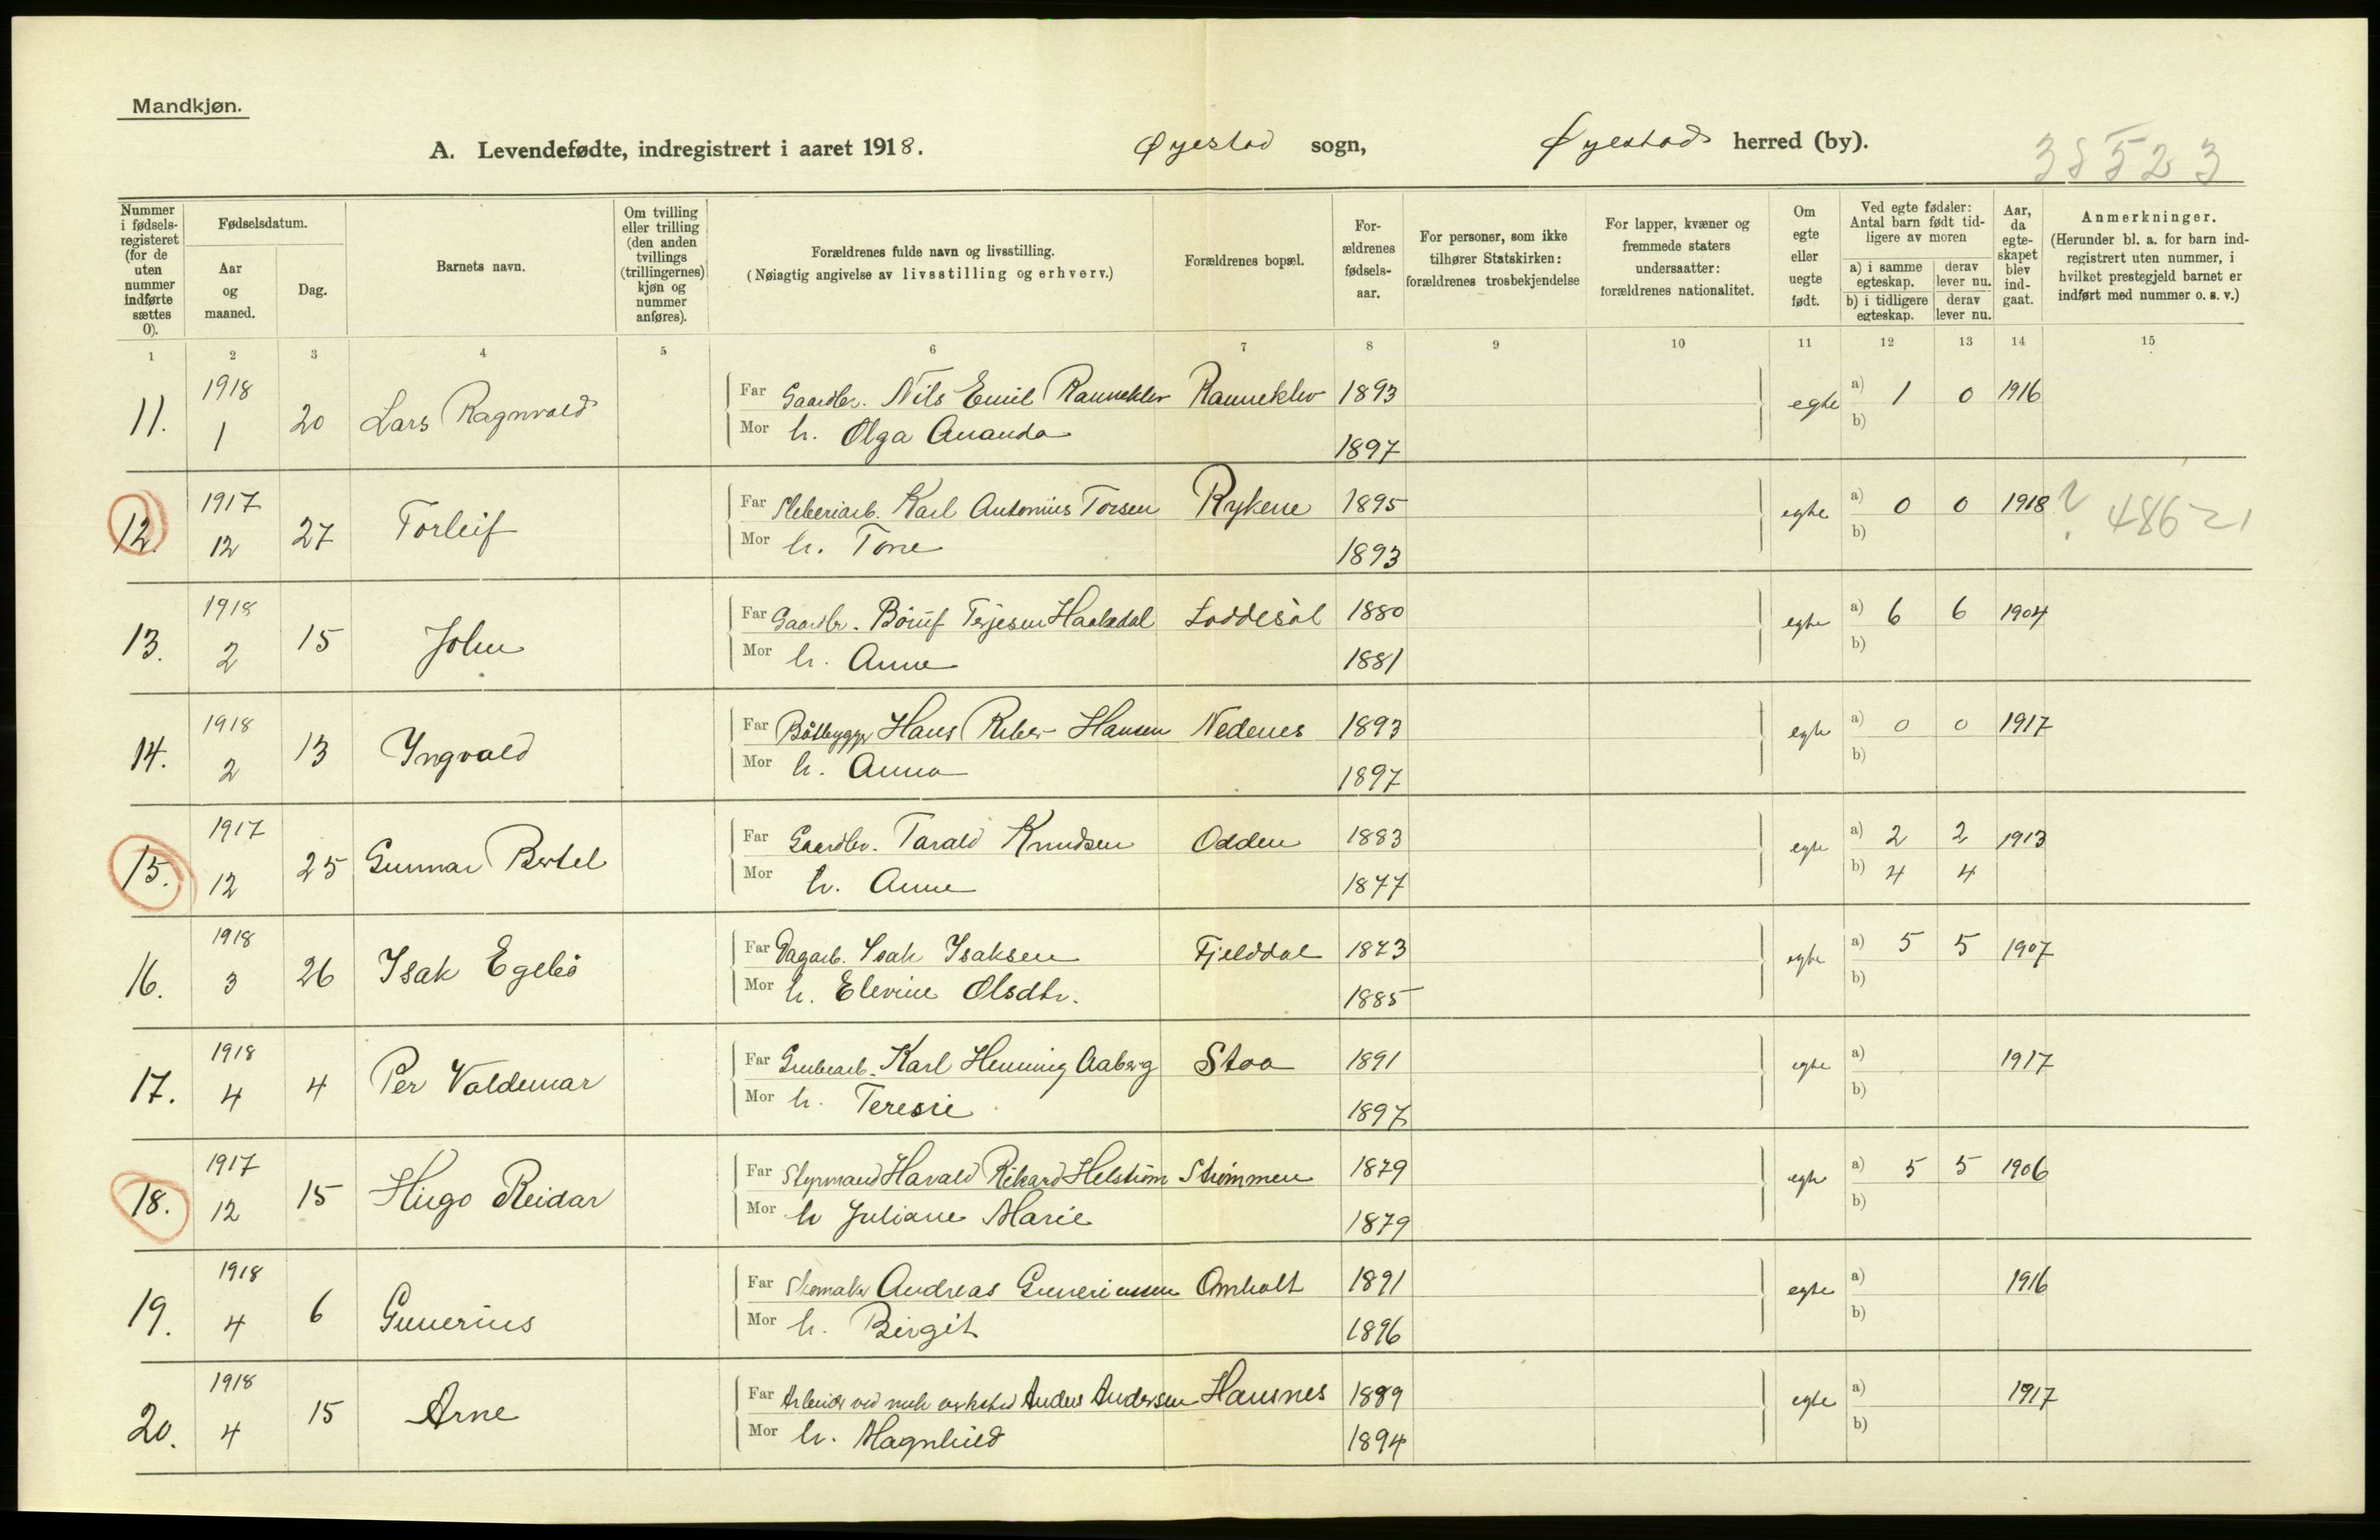 Mandkjøn.
A. Levendefødte, indregistrert i aaret 1918. Øyestad sogn, Øyestad herred (by).
38523
Nummer i fødselsregisteret (for de uten nummer indførte sættes 0).
Fødselsdatum.
Aar og maaned.
Dag.
Barnets navn.
Om tvilling eller trilling (den anden tvillings (trillingernes) kjøn og nummer anføres).
Forældrenes fulde navn og livsstilling.
(Nøiagtig angivelse av livsstilling og erhverv.)
Forældrenes bopæl.
Forældrenes fødselsaar.
For personer, som ikke tilhører Statskirken: forældrenes trosbekjendelse
For lapper, kvæner og fremmede staters undersaatter: forældrenes nationalitet.
Om egte eller uegte født.
Ved egte fødsler: Antal barn født tidligere av moren
a) i samme egteskap. derav lever nu.
b) i tidligere egteskap. derav lever nu.
Aar, da egteskapet blev indgaat.
Anmerkninger.
(Herunder bl. a. for barn indregistrert uten nummer, i hvilket prestegjeld barnet er indført med nummer o. s. v.)
1 2 3 4 5 6 7 8 9 10 11 12 13 14 15
11. 1918 1 20 Lars Ragnvald Far Gaardbr. Nils Emil Ranneklev Ranneklev 1893 egte a) 1 0 1916
Mor h. Olga Amanda 1897 b)
12. 1917 12 27 Torleif Far Karl Antonius Torsen Rykene 1895 egte a) 0 0 1918 ? 48621
Mor h. Tone 1893 b)
13. 1918 2 15 John Far Gaardbr. Terjesen Loddesøl 1880 egte a) 6 6 1904
Mor h. Anne 1881 b)
14. 1918 2 13 Yngvald Far Båtbygger Hans Riber Hansen Nedenes 1893 egte a) 0 0 1917
Mor h. Anna 1897 b)
15. 1917 12 25 Gunnar Bertel Far Gaardbr. Tarald Knudsen Odden 1883 egte a) 2 2 1913
Mor h. Anne 1877 b) 4 4
16. 1918 3 26 Isak Far Dagarb. Isak Isaksen Fjelddal 1873 egte a) 5 5 1907
Mor h. Elevine Olsdtr. 1885 b)
17. 1918 4 4 Per Valdemar Far Grubearb. Karl Henning Aaberg Stoa 1891 egte a) 1917
Mor h. Teresie 1897 b)
18. 1917 12 15 Hugo Reidar Far Styrmand Harald Rikard Helstrøm Strømmen 1879 egte a) 5 5 1906
Mor h Juliane Marie 1879 b)
19. 1918 4 6 Gunerius Far Skomaker Andreas Guneriussen Omholt 1891 egte a) 1916
Mor h. Birgit 1896 b)
20. 1918 4 15 Arne Far Arbeider ved mek verksted Anders Andersen 1889 egte a) 1917
Mor h. Magnhild 1894 b)